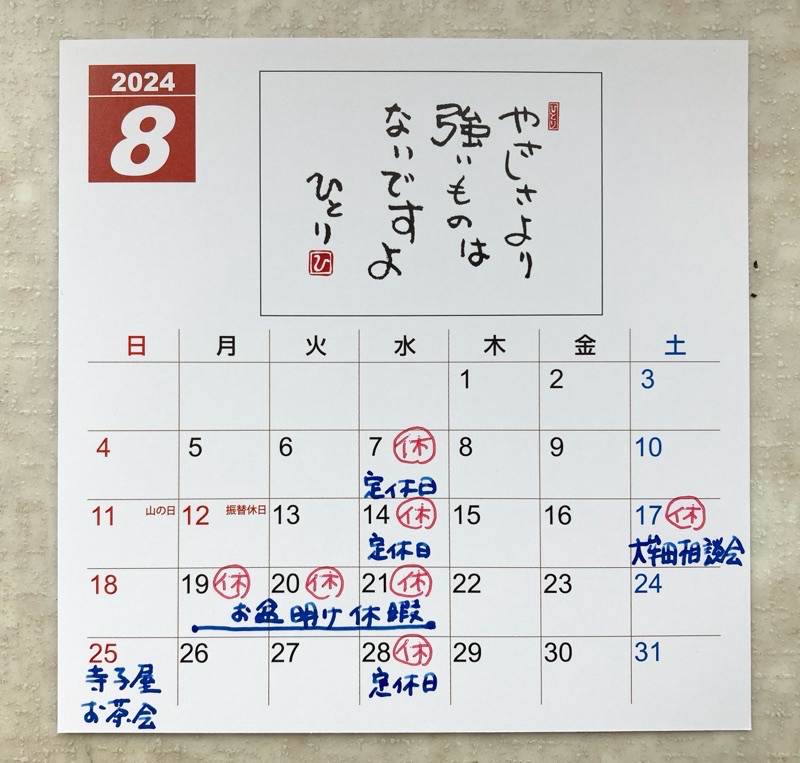 2024
8
ひとり
やさしさより
強いものは
ないですよ
ひとり
ひ
日 月 火 水 木 金 土
1 2 3
4 5 6 7 休 8 9 10
定休日
11 山の日 12 振替休日 13 14 休 15 16 17 休
定休日 大牟田相談会
18 19 休 20 休 21 休 22 23 24
お盆明け休暇
25 26 27 28 休 29 30 31
寺子屋 定休日
お茶会